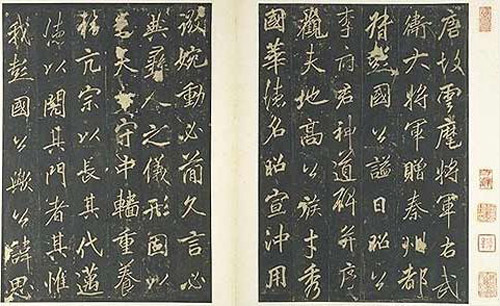 唐故雲麾將軍右武
衛大將軍贈秦州都
督彭國公謚曰昭公
李府君神道碑并序
觀夫地高公族才秀
國華德名昭宣沖用
微婉動必簡久言必
典彝人之儀形國以
夫守中重養
亢宗以長其代邁
德以闢其門者其惟
我彭國公歟公諱思